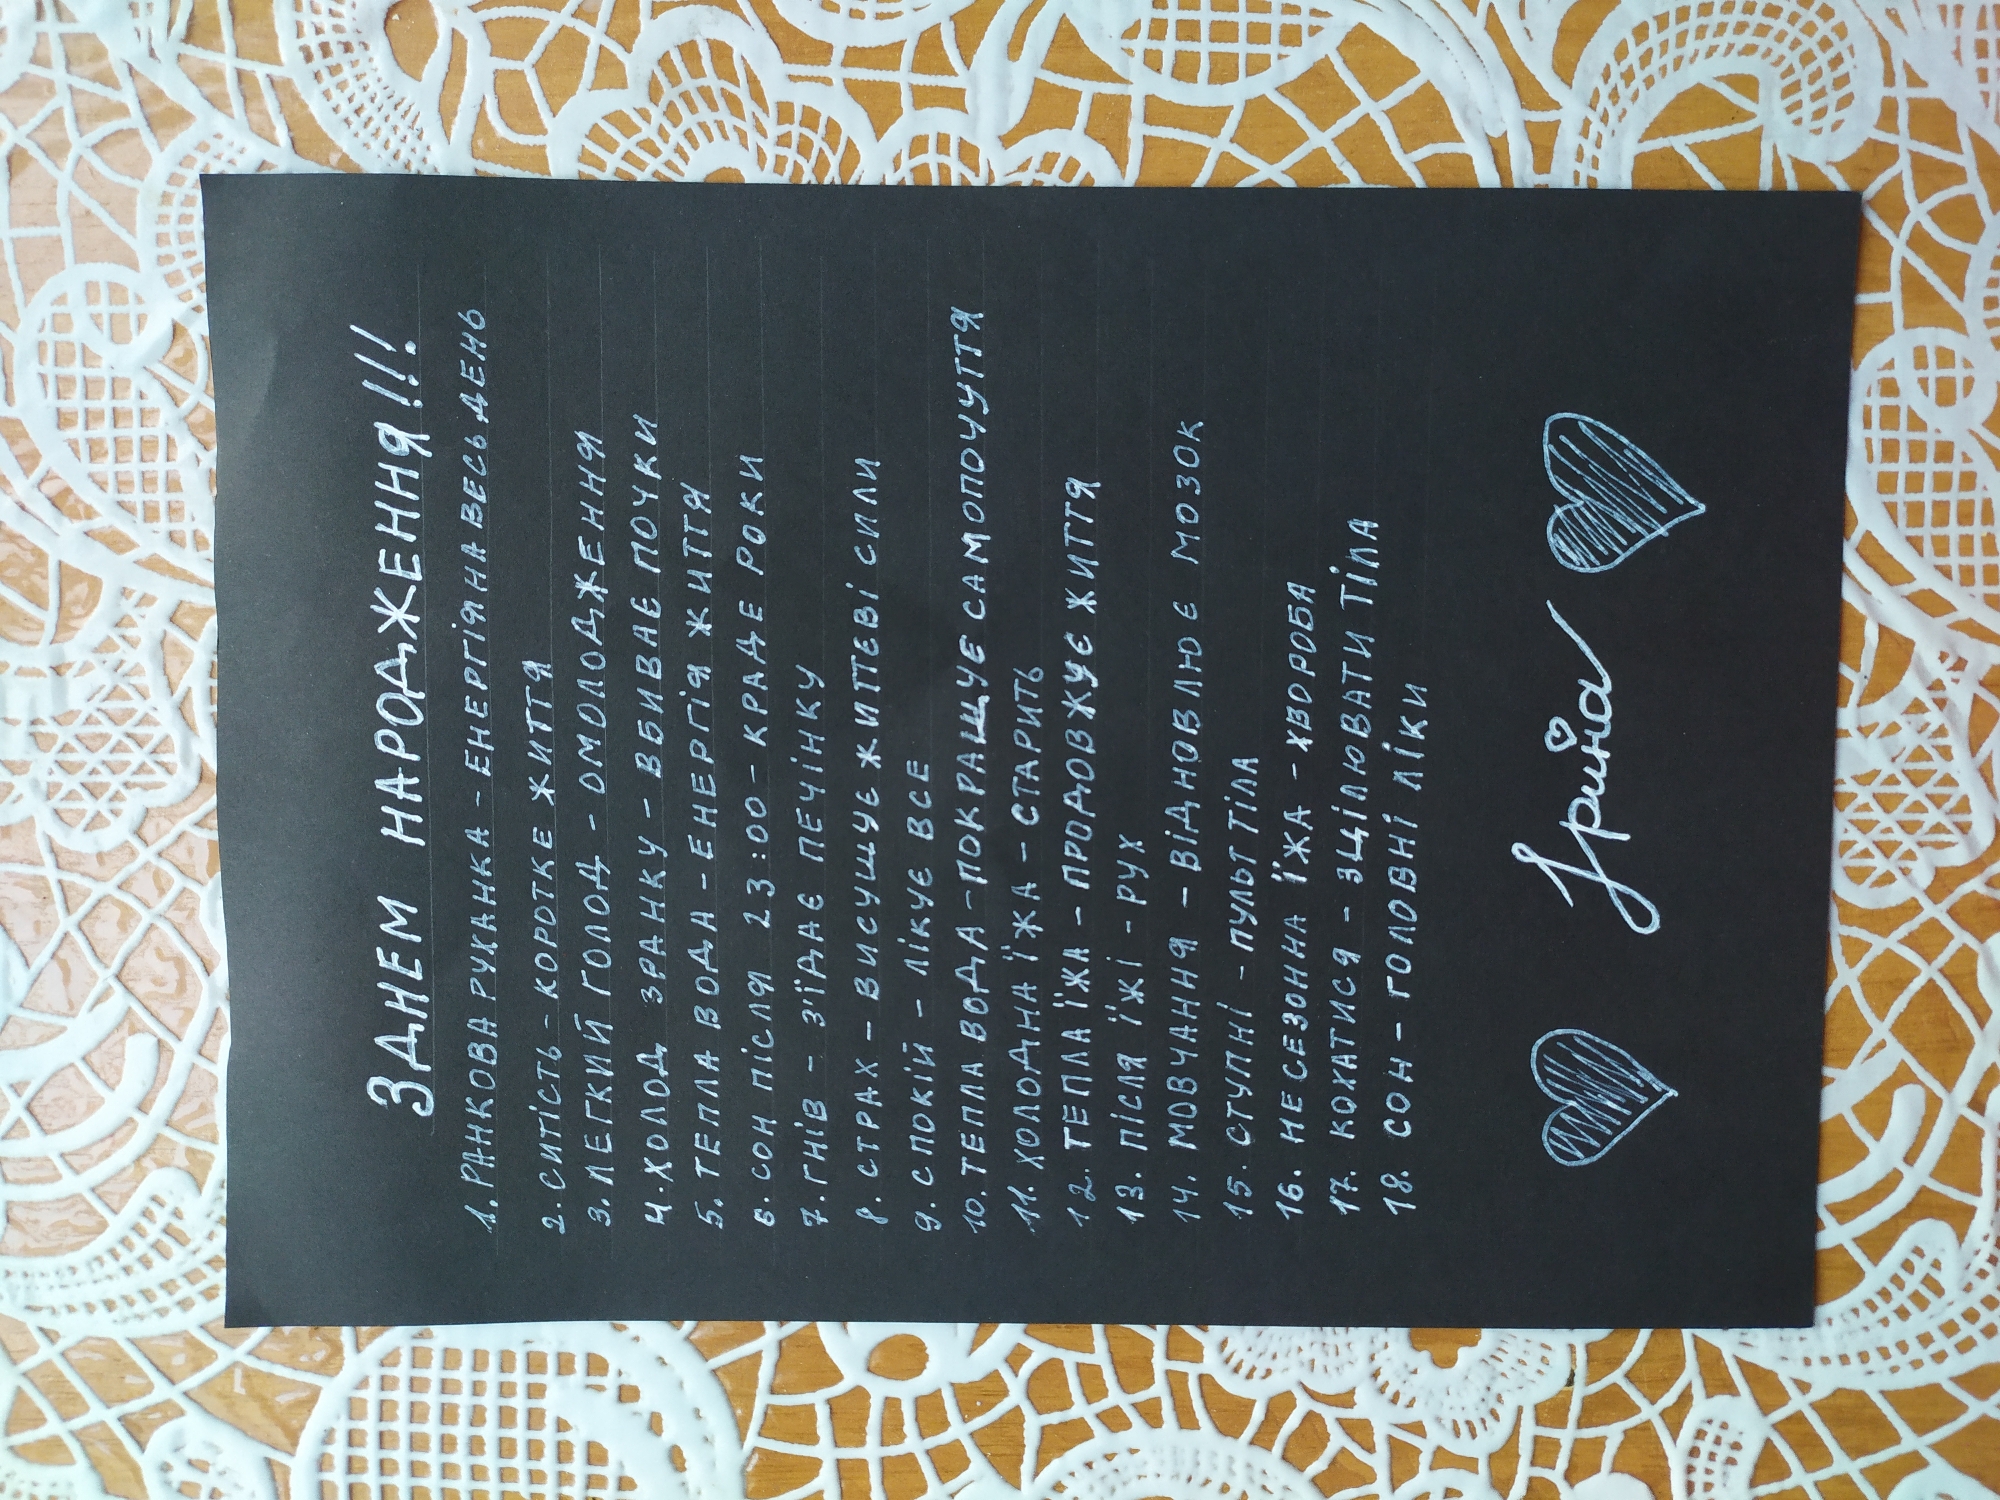 З ДНЕМ НАРОДЖЕННЯ!!!
1. РАНКОВА РУХАНКА - ЕНЕРГІЯ НА ВЕСЬ ДЕНЬ
2. СИТІСТЬ - КОРОТКЕ ЖИТТЯ
3. ЛЕГКИЙ ГОЛОД - ОМОЛОДЖЕННЯ
4. ХОЛОД ЗРАНКУ - ВБИВАЄ ПОЧКИ
5. ТЕПЛА ВОДА - ЕНЕРГІЯ ЖИТТЯ
6. СОН ПІСЛЯ 23:00 - КРАДЕ РОКИ
7. ГНІВ - З'ЇДАЄ ПЕЧІНКУ
8. СТРАХ - ВИСУЩУЄ ЖИТТЄВІ СИЛИ
9. СПОКІЙ - ЛІКУЄ ВСЕ
10. ТЕПЛА ВОДА - ПОКРАЩУЄ САМОПОЧУТТЯ
11. ХОЛОДНА ЇЖА - СТАРИТЬ
12. ТЕПЛА ЇЖА - ПРОДОВЖУЄ ЖИТТЯ
13. ПІСЛЯ ЇЖІ - РУХ
14. МОВЧАННЯ - ВІДНОВЛЮЄ МОЗОК
15. СТУПНІ - ПУЛЬТ ТІЛА
16. НЕСЕЗОННА ЇЖА - ХВОРОБА
17. КОХАТИСЯ - ЗЦІЛЮВАТИ ТІЛА
18. СОН - ГОЛОВНІ ЛІКИ
Ірина